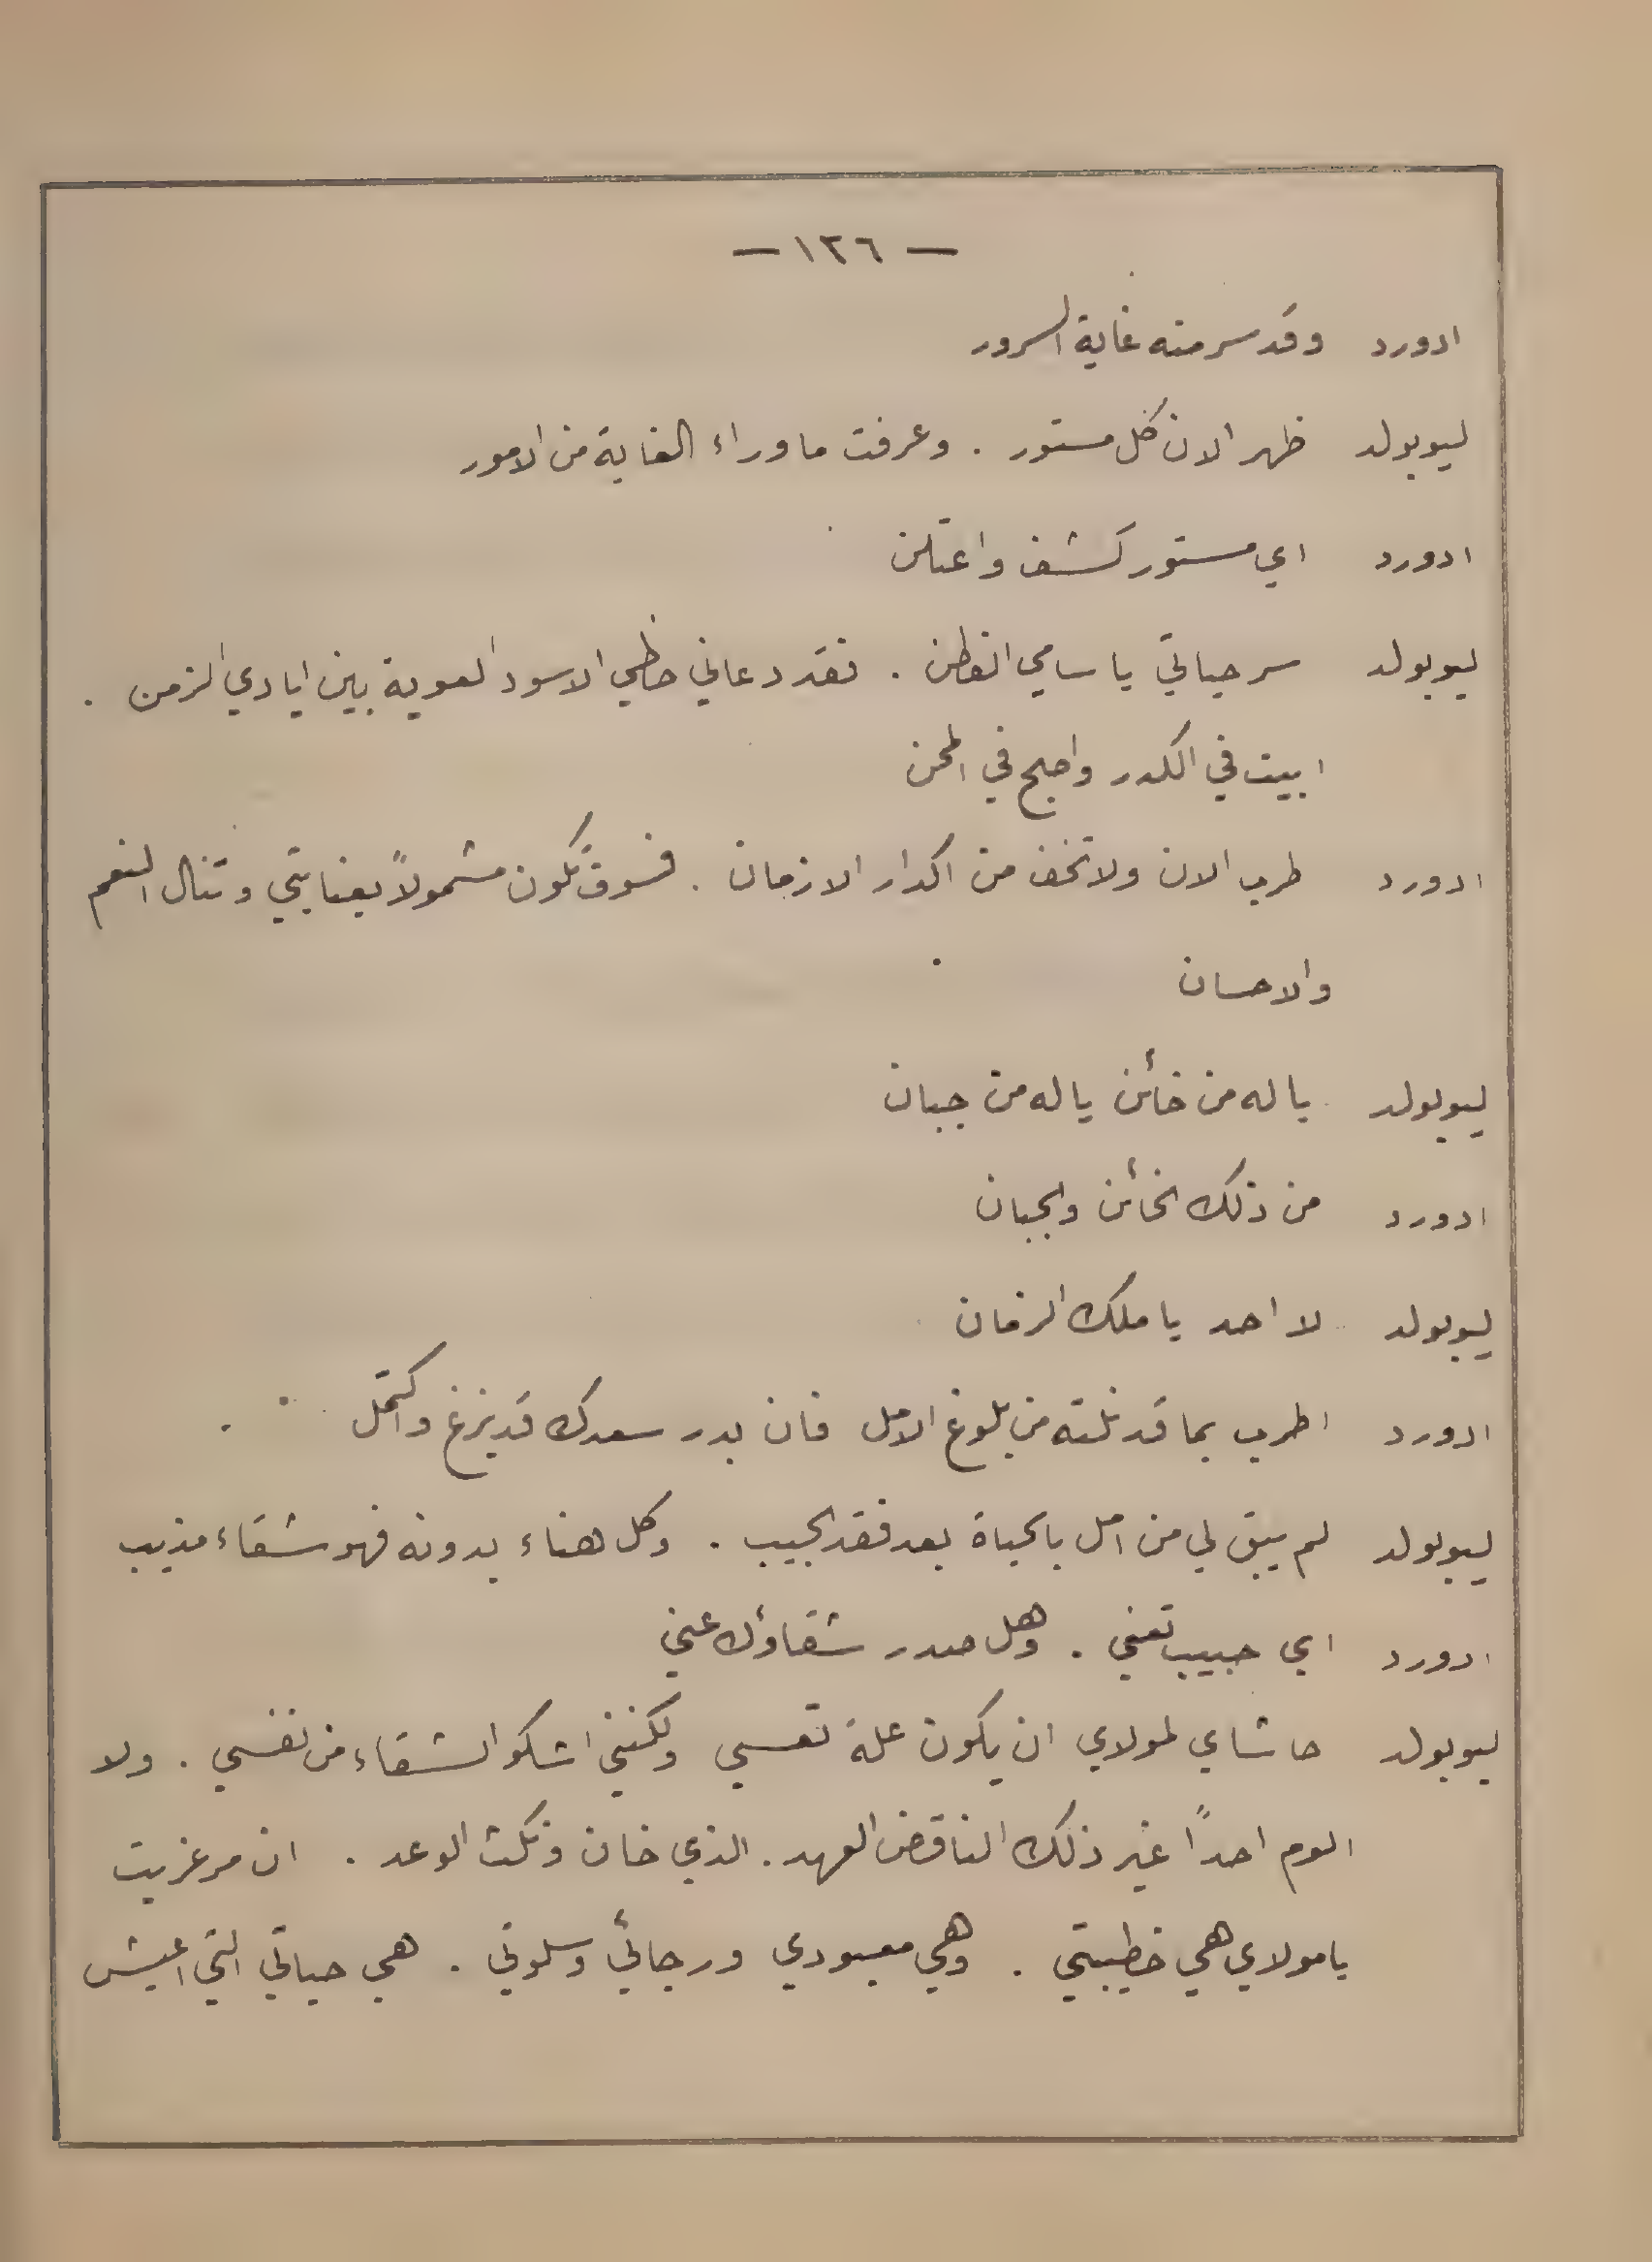 — ١٢٦ —
ادورد وقد سر منه غاية السرور
ليوبولد ظهر الان كل مستور . وعرفت ما وراء الغاية من الامور
ادورد اي مستور كشف واعتلن
ليوبولد سر حياتي يا سامي الفطن . فقد دعاني حظي الاسود العوبة بين ايادي الزمن .
ابيت في الكدر واصبح في المحن
ادورد طرب الان ولا تخف من اكدار الازمان . فسوف تكون مشمولاً بعنايتي وتنال النعم
والاحسان
ليوبولد يا له من خائن يا له من جبان
ادورد من ذلك الخائن والجبان
ليوبولد لا احد يا ملك الزمان
ادورد اطرب بما قد نلته من بلوغ الامل فان بدر سعدك قد بزغ واكتمل .
ليوبولد لم يبق لي من امل بالحياة بعد فقد الحبيب . وكل هناء بدونه فهو شقاء مذيب
ادورد اي حبيب تعني . وهل صدر شقاؤك عني
ليوبولد حاشاي لمولاي ان يكون علة تعسي ولكنني اشكو الشقاء من نفسي . ولا
الوم احداً غير ذلك الناقض العهد . الذي خان ونكث الوعد . ان مرغريت
يا مولاي هي خطيبتي . وهي معبودي ورجائي وسلوتي . هي حياتي التي اعيش